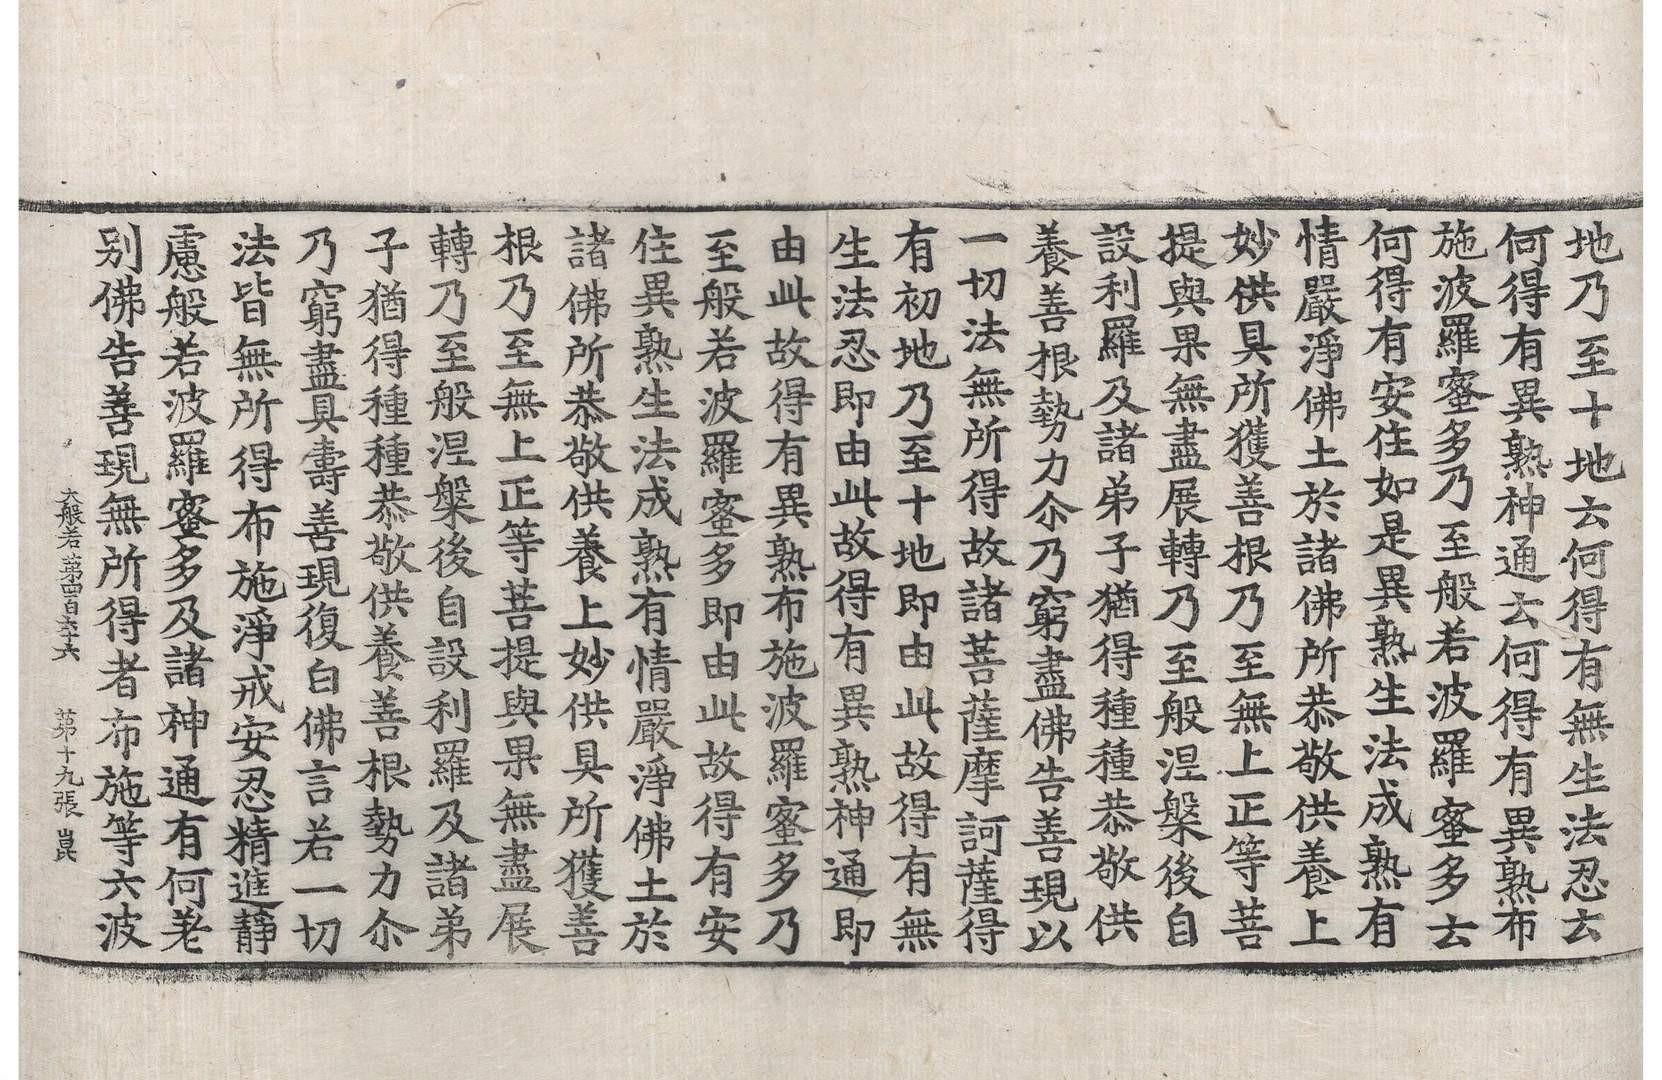 地乃至十地云何得有無生法忍云
何得有異熟神通云何得有異熟布
施波羅蜜多乃至般若波羅蜜多云
何得有安住如是異熟生法成熟有
情嚴淨佛土於諸佛所恭敬供養上
妙供具所獲善根乃至無上正等菩
提與果無盡展轉乃至般涅槃後自
設利羅及諸弟子猶得種種恭敬供
養善根勢力尒乃窮盡佛告善現以
一切法無所得故諸菩薩摩訶薩得
有初地乃至十地即由此故得有無
生法忍即由此故得有異熟神通即
由此故得有異熟布施波羅蜜多乃
至般若波羅蜜多即由此故得有安
住異熟生法成熟有情嚴淨佛土於
諸佛所恭敬供養上妙供具所獲善
根乃至無上正等菩提與果無盡展
轉乃至般涅槃後自設利羅及諸弟
子猶得種種恭敬供養善根勢力尒
乃窮盡具壽善現復白佛言若一切
法皆無所得布施淨戒安忍精進靜
慮般若波羅蜜多及諸神通有何差
别佛告善現無所得者布施等六波
大般若第四百六十六 第十九張 崑